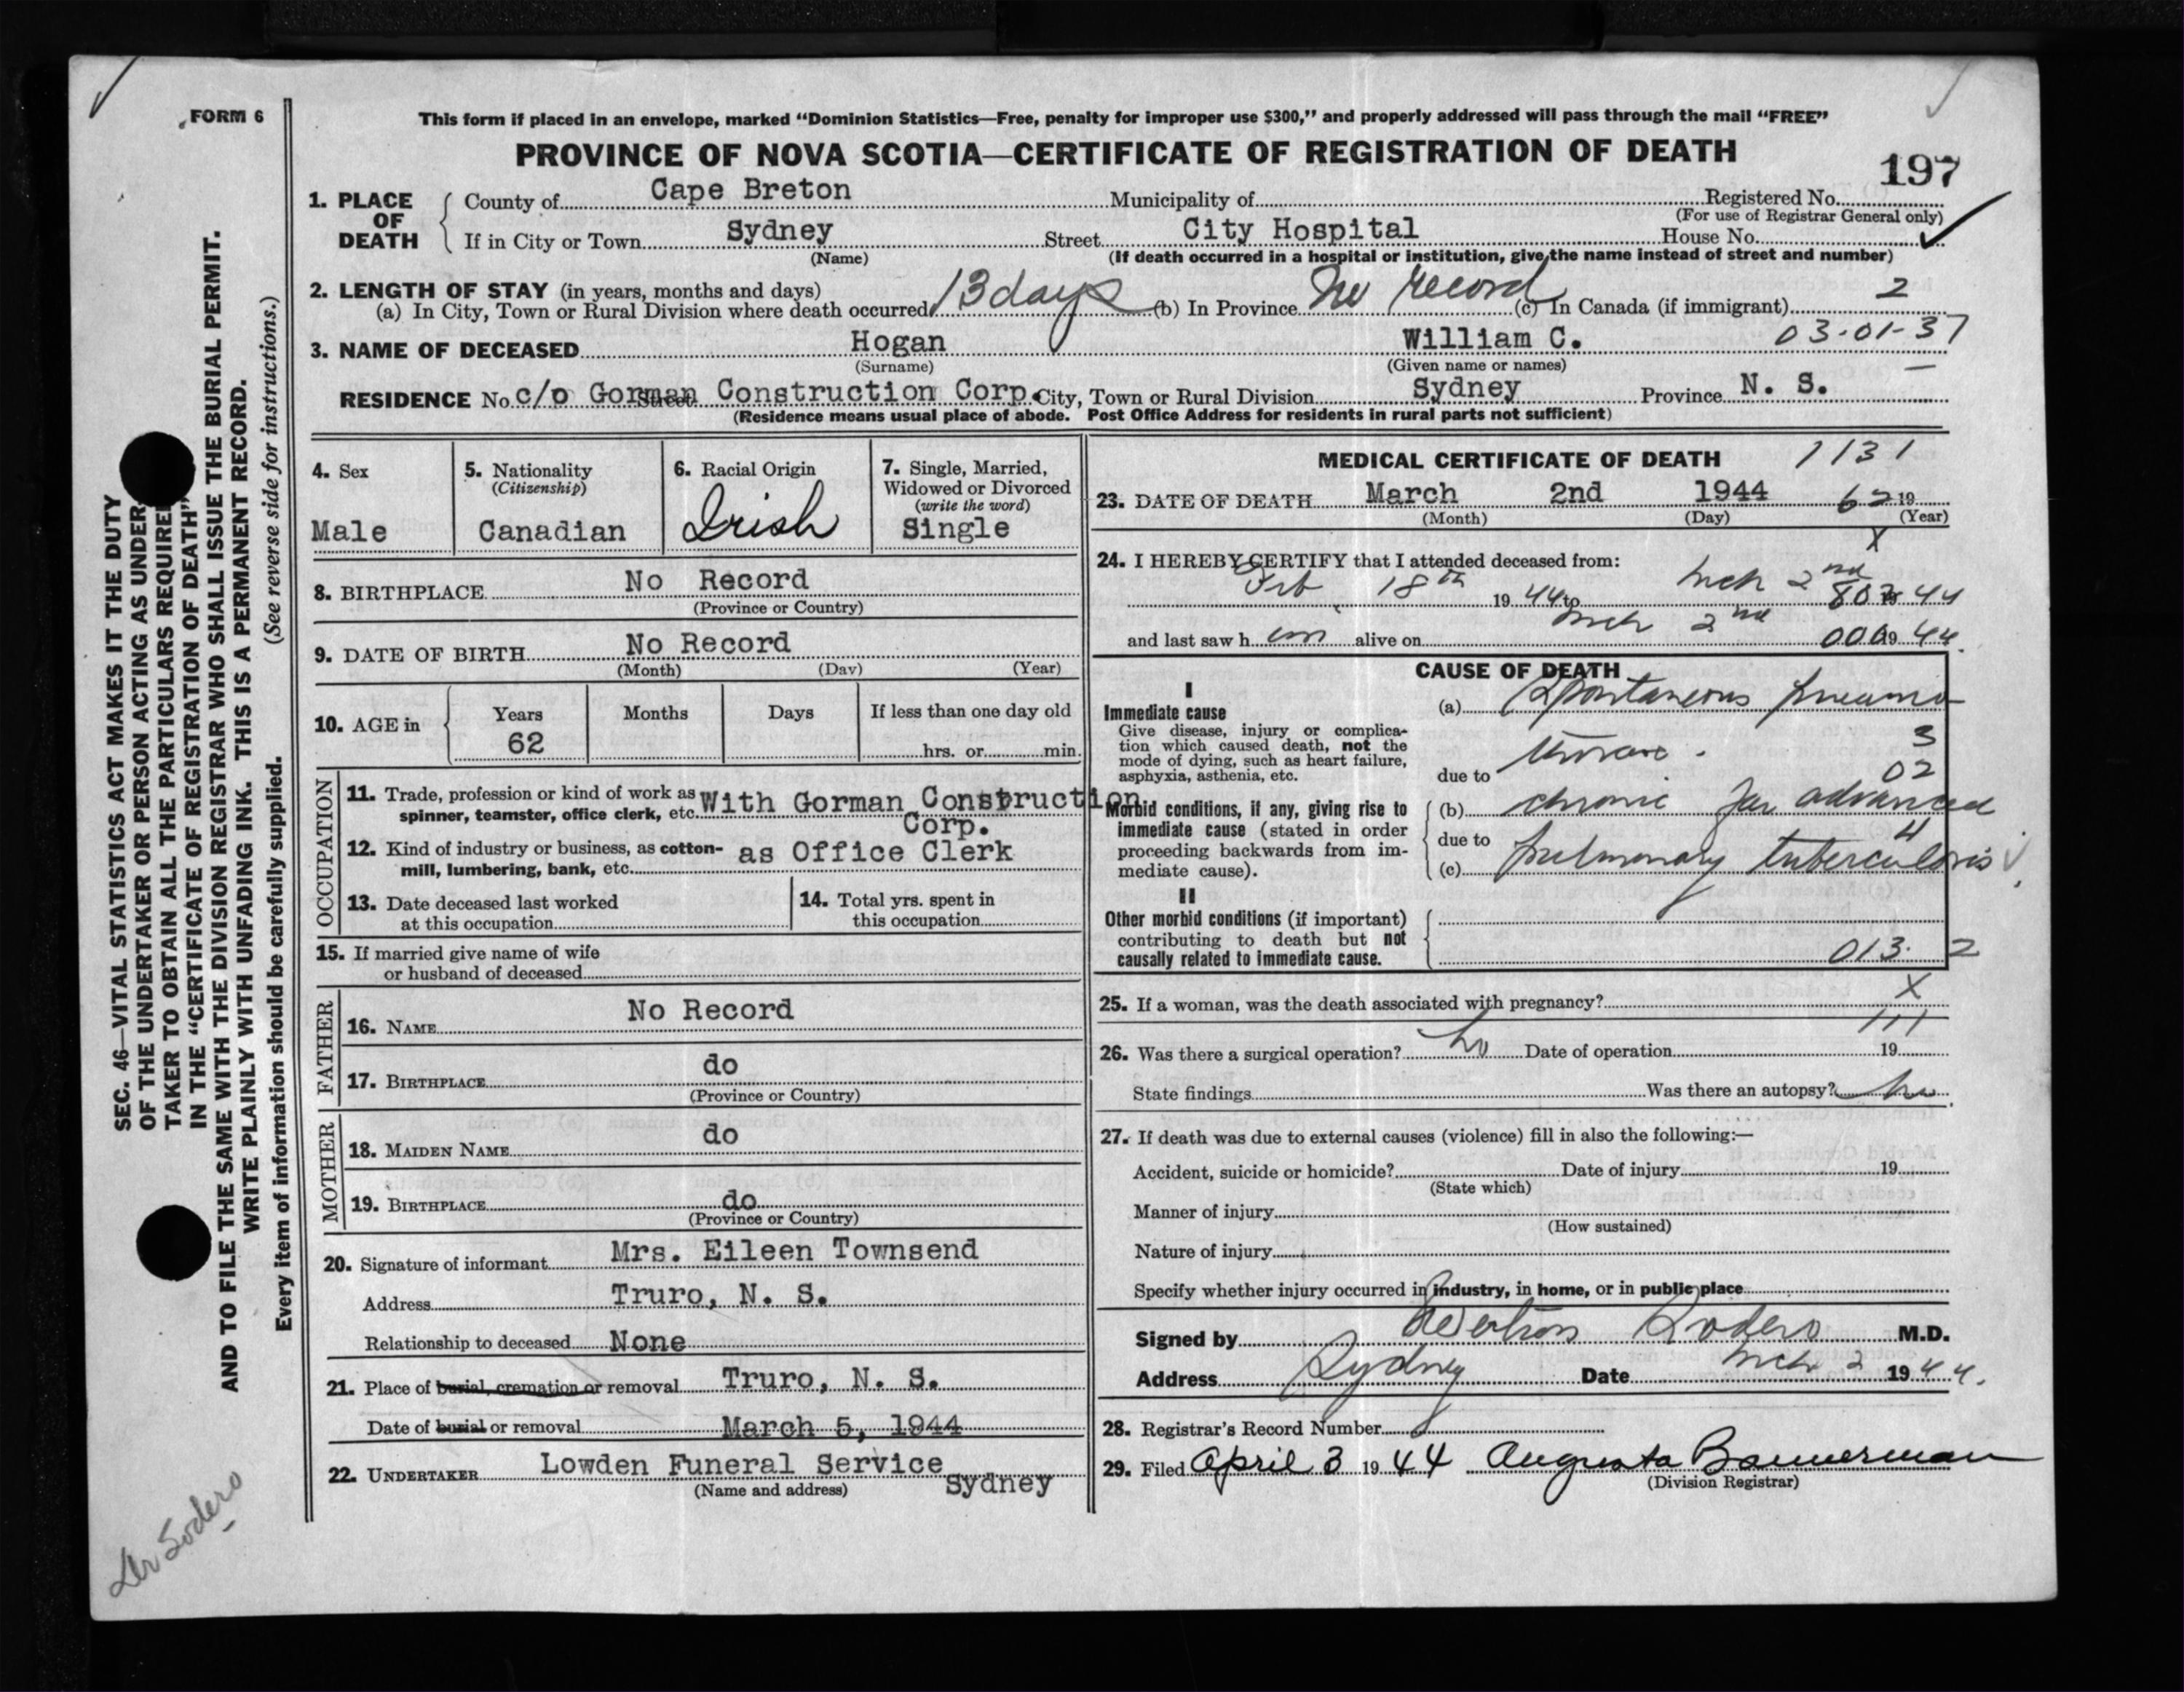 FORM 6
This form if placed in an envelope, marked "Dominion Statistics—Free, penalty for improper use $300," and properly addressed will pass through the mail "FREE"
PROVINCE OF NOVA SCOTIA—CERTIFICATE OF REGISTRATION OF DEATH
197
1. PLACE OF DEATH
County of Cape Breton Municipality of Registered No.
(For use of Registrar General only)
If in City or Town Sydney Street City Hospital House No.
(Name) (If death occurred in a hospital or institution, give the name instead of street and number)
2. LENGTH OF STAY (in years, months and days)
(a) In City, Town or Rural Division where death occurred 13 days (b) In Province No record (c) In Canada (if immigrant) 2
3. NAME OF DECEASED Hogan William C. 03-01-37
(Surname) (Given name or names)
RESIDENCE No. c/o Gorman Construction Corp. Street City, Town or Rural Division Sydney Province N. S.
(Residence means usual place of abode. Post Office Address for residents in rural parts not sufficient)
4. Sex
Male
5. Nationality
(Citizenship)
Canadian
6. Racial Origin
Irish
7. Single, Married,
Widowed or Divorced
(write the word)
Single
8. BIRTHPLACE No Record
(Province or Country)
9. DATE OF BIRTH No Record
(Month) (Day) (Year)
10. AGE in
Years Months Days If less than one day old
62 hrs. or min.
OCCUPATION
11. Trade, profession or kind of work as
spinner, teamster, office clerk, etc. With Gorman Construction
Corp.
12. Kind of industry or business, as cotton-
mill, lumbering, bank, etc. as Office Clerk
13. Date deceased last worked
at this occupation
14. Total yrs. spent in
this occupation
15. If married give name of wife
or husband of deceased
FATHER
16. NAME No Record
17. BIRTHPLACE do
(Province or Country)
MOTHER
18. MAIDEN NAME do
19. BIRTHPLACE do
(Province or Country)
20. Signature of informant Mrs. Eileen Townsend
Address Truro, N. S.
Relationship to deceased None
21. Place of burial, cremation or removal Truro, N. S.
Date of burial or removal March 5, 1944
22. UNDERTAKER Lowden Funeral Service
(Name and address) Sydney
MEDICAL CERTIFICATE OF DEATH 1131
23. DATE OF DEATH March 2nd 1944 62 19
(Month) (Day) (Year)
X
24. I HEREBY CERTIFY that I attended deceased from:
Feb 18th 1944 to Mch 2nd 1944
and last saw h im alive on Mch 2nd 1944
CAUSE OF DEATH
I
Immediate cause
Give disease, injury or complica-
tion which caused death, not the
mode of dying, such as heart failure,
asphyxia, asthenia, etc.
(a) Spontaneous pneumo
thorax.
3
02
due to
Morbid conditions, if any, giving rise to
immediate cause (stated in order
proceeding backwards from im-
mediate cause).
(b) chronic far advanced
due to 4
(c) pulmonary tuberculosis
II
Other morbid conditions (if important)
contributing to death but not
causally related to immediate cause.
013. 2
25. If a woman, was the death associated with pregnancy? X
111
26. Was there a surgical operation? No Date of operation 19
State findings Was there an autopsy? No
27. If death was due to external causes (violence) fill in also the following:—
Accident, suicide or homicide? Date of injury 19
(State which)
Manner of injury
(How sustained)
Nature of injury
Specify whether injury occurred in industry, in home, or in public place
Signed by Sodero M.D.
Address Sydney Date Mch 2 1944.
28. Registrar's Record Number
29. Filed April 3 1944 Augusta Bannerman
(Division Registrar)
SEC. 46—VITAL STATISTICS ACT MAKES IT THE DUTY
OF THE UNDERTAKER OR PERSON ACTING AS UNDER-
TAKER TO OBTAIN ALL THE PARTICULARS REQUIRED
IN THE "CERTIFICATE OF REGISTRATION OF DEATH"
AND TO FILE THE SAME WITH THE DIVISION REGISTRAR WHO SHALL ISSUE THE BURIAL PERMIT.
WRITE PLAINLY WITH UNFADING INK. THIS IS A PERMANENT RECORD.
Every item of information should be carefully supplied. (See reverse side for instructions.)
Dr Sodero